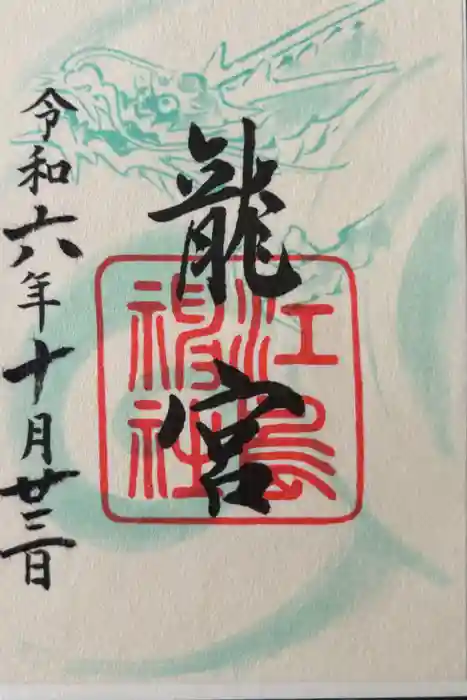 龍宮
江島
神社
令和六年十月廿三日